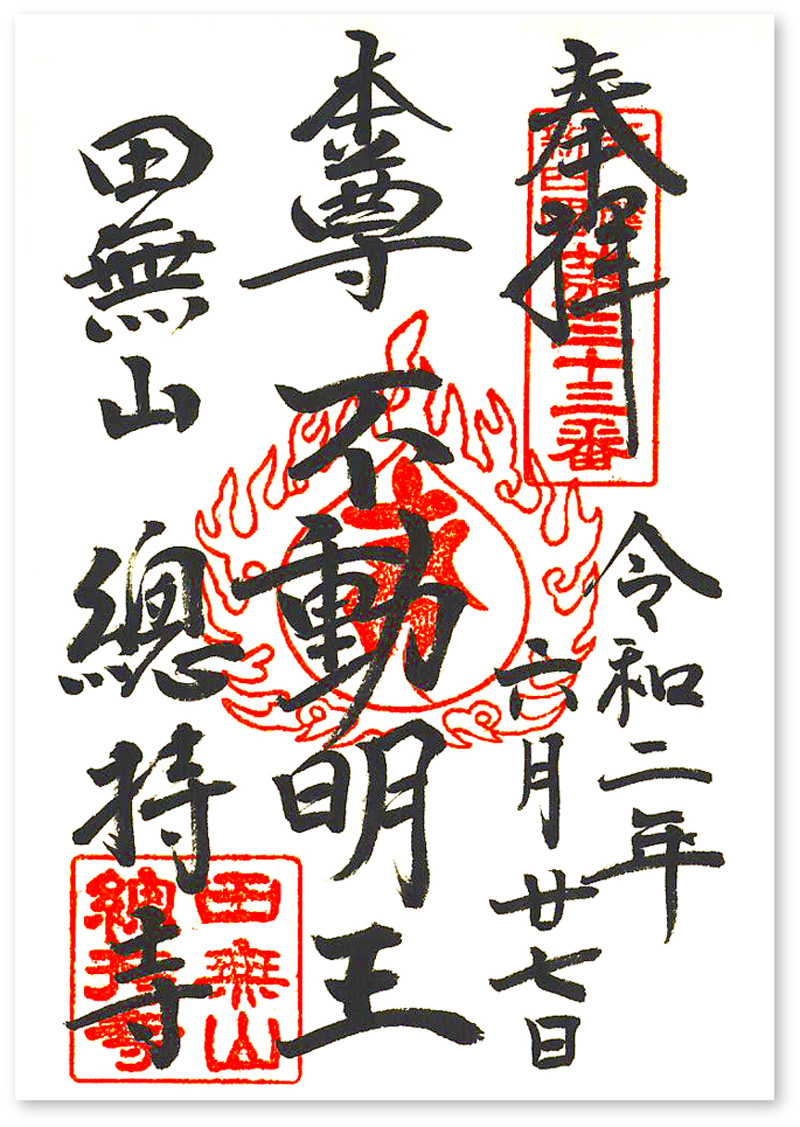 奉拝
第三十三番
令和二年
六月廿七日
本尊
不動明王
田無山
總持寺
田無山
總持寺